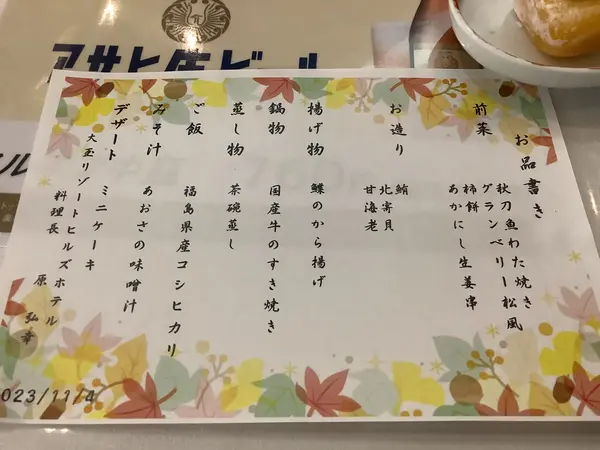 アサヒ生ビール
お品書き
前菜
秋刀魚わた焼き
グランベリー松風
柿餅
あかにし生姜串
お造り
鮪
北寄貝
甘海老
揚げ物
鰈のから揚げ
鍋物
国産牛のすき焼き
蒸し物
茶碗蒸し
ご飯
福島県産コシヒカリ
みそ汁
あおさの味噌汁
デザート
ミニケーキ
大玉リゾートヒルズホテル
料理長 原 弘幸
2023/11/4